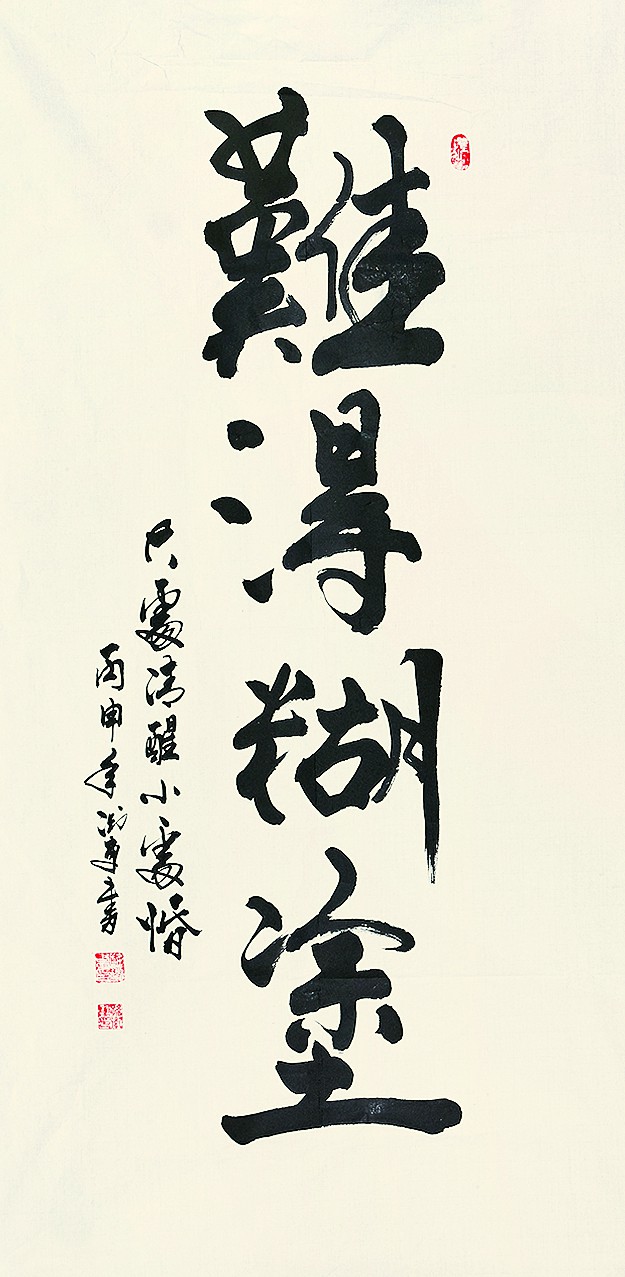 難得糊塗
大處清醒小處惛
丙申年書